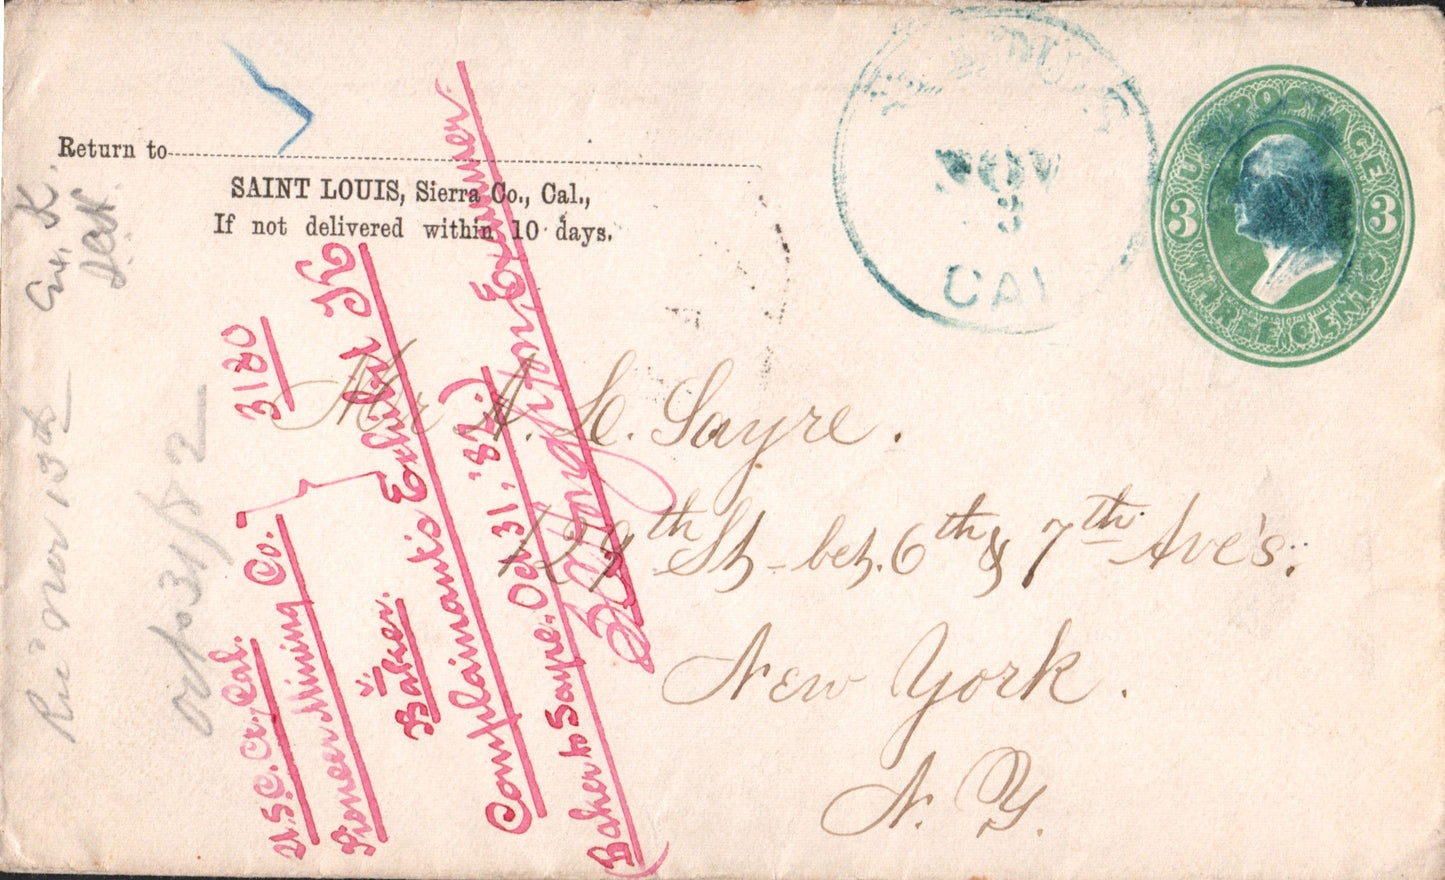 Return to
SAINT LOUIS, Sierra Co., Cal.,
If not delivered within 10 days.
NOV
3
CAL
U.S. POSTAGE
3 3
THREE CENTS
Mr A. L. Sayre.
129th St - bet. 6th & 7th Ave's.
New York.
N. Y.
U.S.C.Ct., Cal. 3120
Pioneer Mining Co.
v.
Baker.
Exhibit K
Complainant's
Baker to Sayre. Oct 31, '82.)
Examiner.
Ex. K.
Rec'd Nov 13th
Oct 31/82